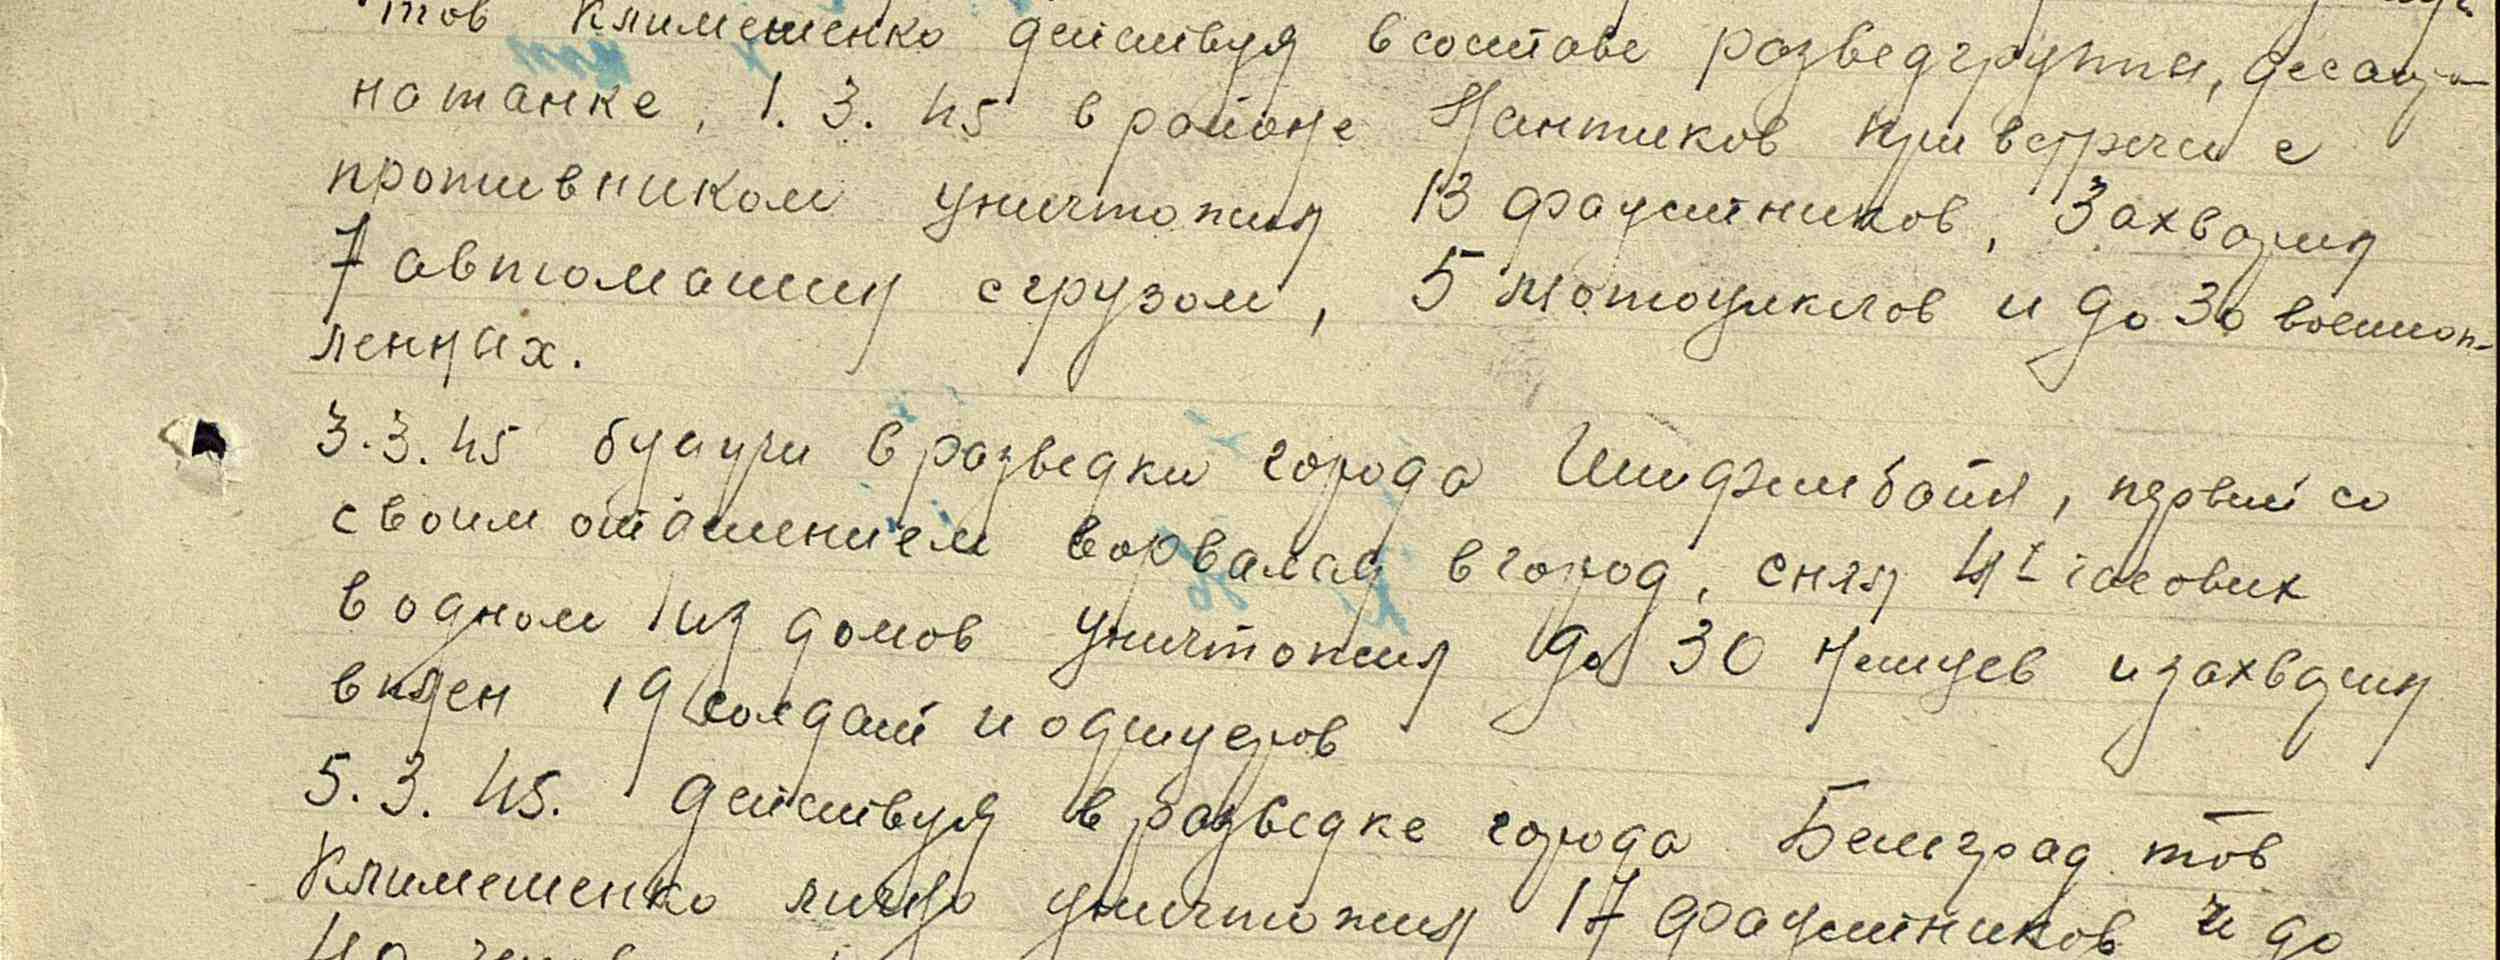 тов Климешенко действуя в составе разведгруппы, десан
на танке, 1.3.45 в районе Нантиков при встречи с
противником уничтожил 13 фаустников, Захватил
7 автомашин с грузом, 5 мотоциклов и до 30 военноп-
ленных.
3.3.45 будучи в разведки города Шифельбайн, первый со
своим отделением ворвался в город, снял 4х часовых
в одном из домов уничтожил до 30 немцев и захватил
в плен 19 солдат и офицеров
5.3.45. действуя в разведке города Белград тов
Климешенко лично уничтожил 17 фаустников и до
40